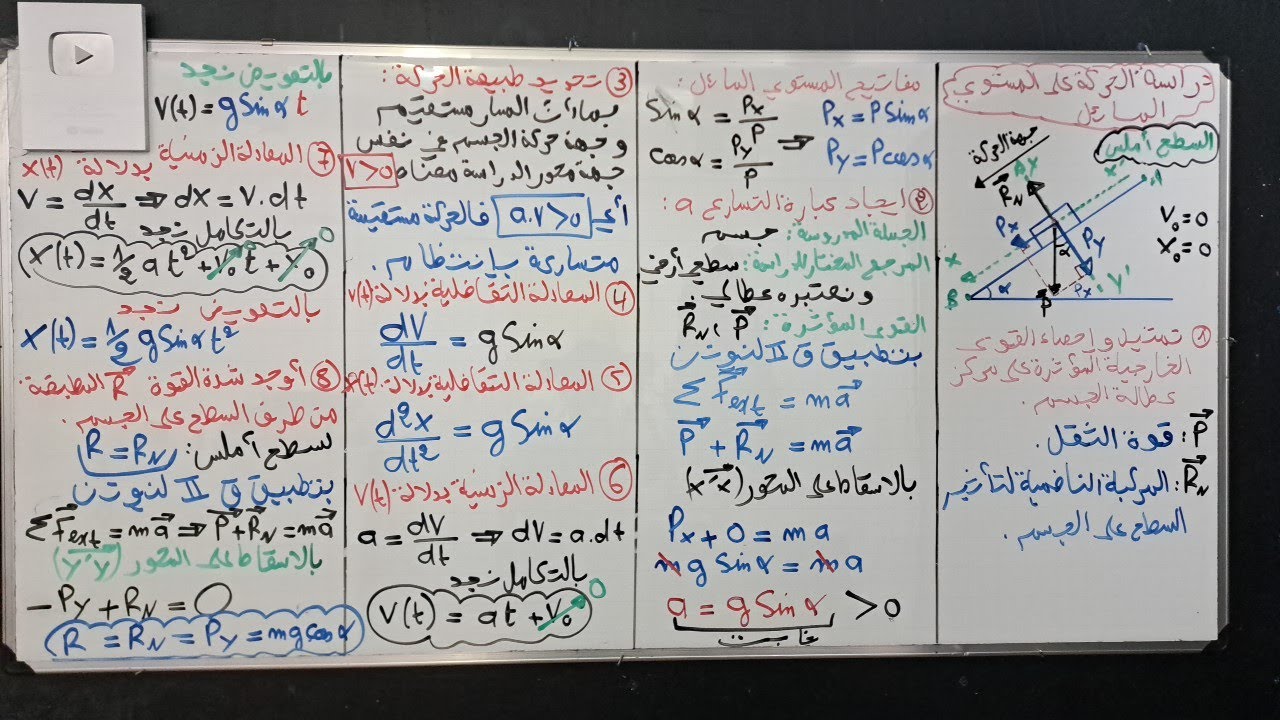 دراسة الحركة على المستوي
المائل
السطع أملس
جهة الحركة
y
R_N
x'
A
P_x
P_y
V_0 = 0
X_0 = 0
x
α
B
α
P
P_x
y'
① تمثيل و إحصاء القوى
الخارجية المؤثرة على مركز
عطالة الجسم.
P⃗: قوة الثقل.
R⃗_N: المركبة الناظمية لتأثير
السطح على الجسم.
مفاتيح المستوي المائل:
Sin α = P_x/P
⇒ P_x = P Sin α
cos α = P_y/P
P_y = P cos α
② ايجاد عبارة التسارع a:
الجملة المدروسة: جسم
المرجع المختار للدراسة: سطحي أرضي
و نعتبره عطالي.
القوى المؤثرة: P⃗ ، R⃗_N
بتطبيق ق II لنيوتن
Σ F⃗_ext = m a⃗
P⃗ + R⃗_N = m a⃗
بالاسقاط على المحور (x'x)
P_x + 0 = m a
m g Sin α = m a
a = g Sin α > 0
ثابت
③ تحديد طبيعة الحركة:
بما أن المسار مستقيم
و جهة حركة الجسم في نفس
جهة محور الدراسة معناه V > 0
أي a.v > 0 فالحركة مستقيمة
متسارعة بإنتظام.
④ المعادلة التفاضلية بدلالة V(t)
dV/dt = g Sin α
⑤ المعادلة التفاضلية بدلالة X(t)
d²X/dt² = g Sin α
⑥ المعادلة الزمنية بدلالة V(t)
a = dV/dt ⇒ dV = a.dt
بالتكامل نجد
V(t) = at + V_0 0
بالتعويض نجد
V(t) = g Sin α t
⑦ المعادلة الزمنية بدلالة X(t)
V = dX/dt ⇒ dX = V.dt
بالتكامل نجد
X(t) = 1/2 a t² + V_0 t + X_0 0 0
بالتعويض نجد
X(t) = 1/2 g Sin α t²
⑧ أوجد شدة القوة R⃗ المطبقة
من طرف السطح على الجسم.
لسطح أملس: R = R_N
بتطبيق ق II لنيوتن
Σ F⃗_ext = m a⃗ ⇒ P⃗ + R⃗_N = m a⃗
بالاسقاط على المحور (y'y)
- P_y + R_N = 0
R = R_N = P_y = m g cos α